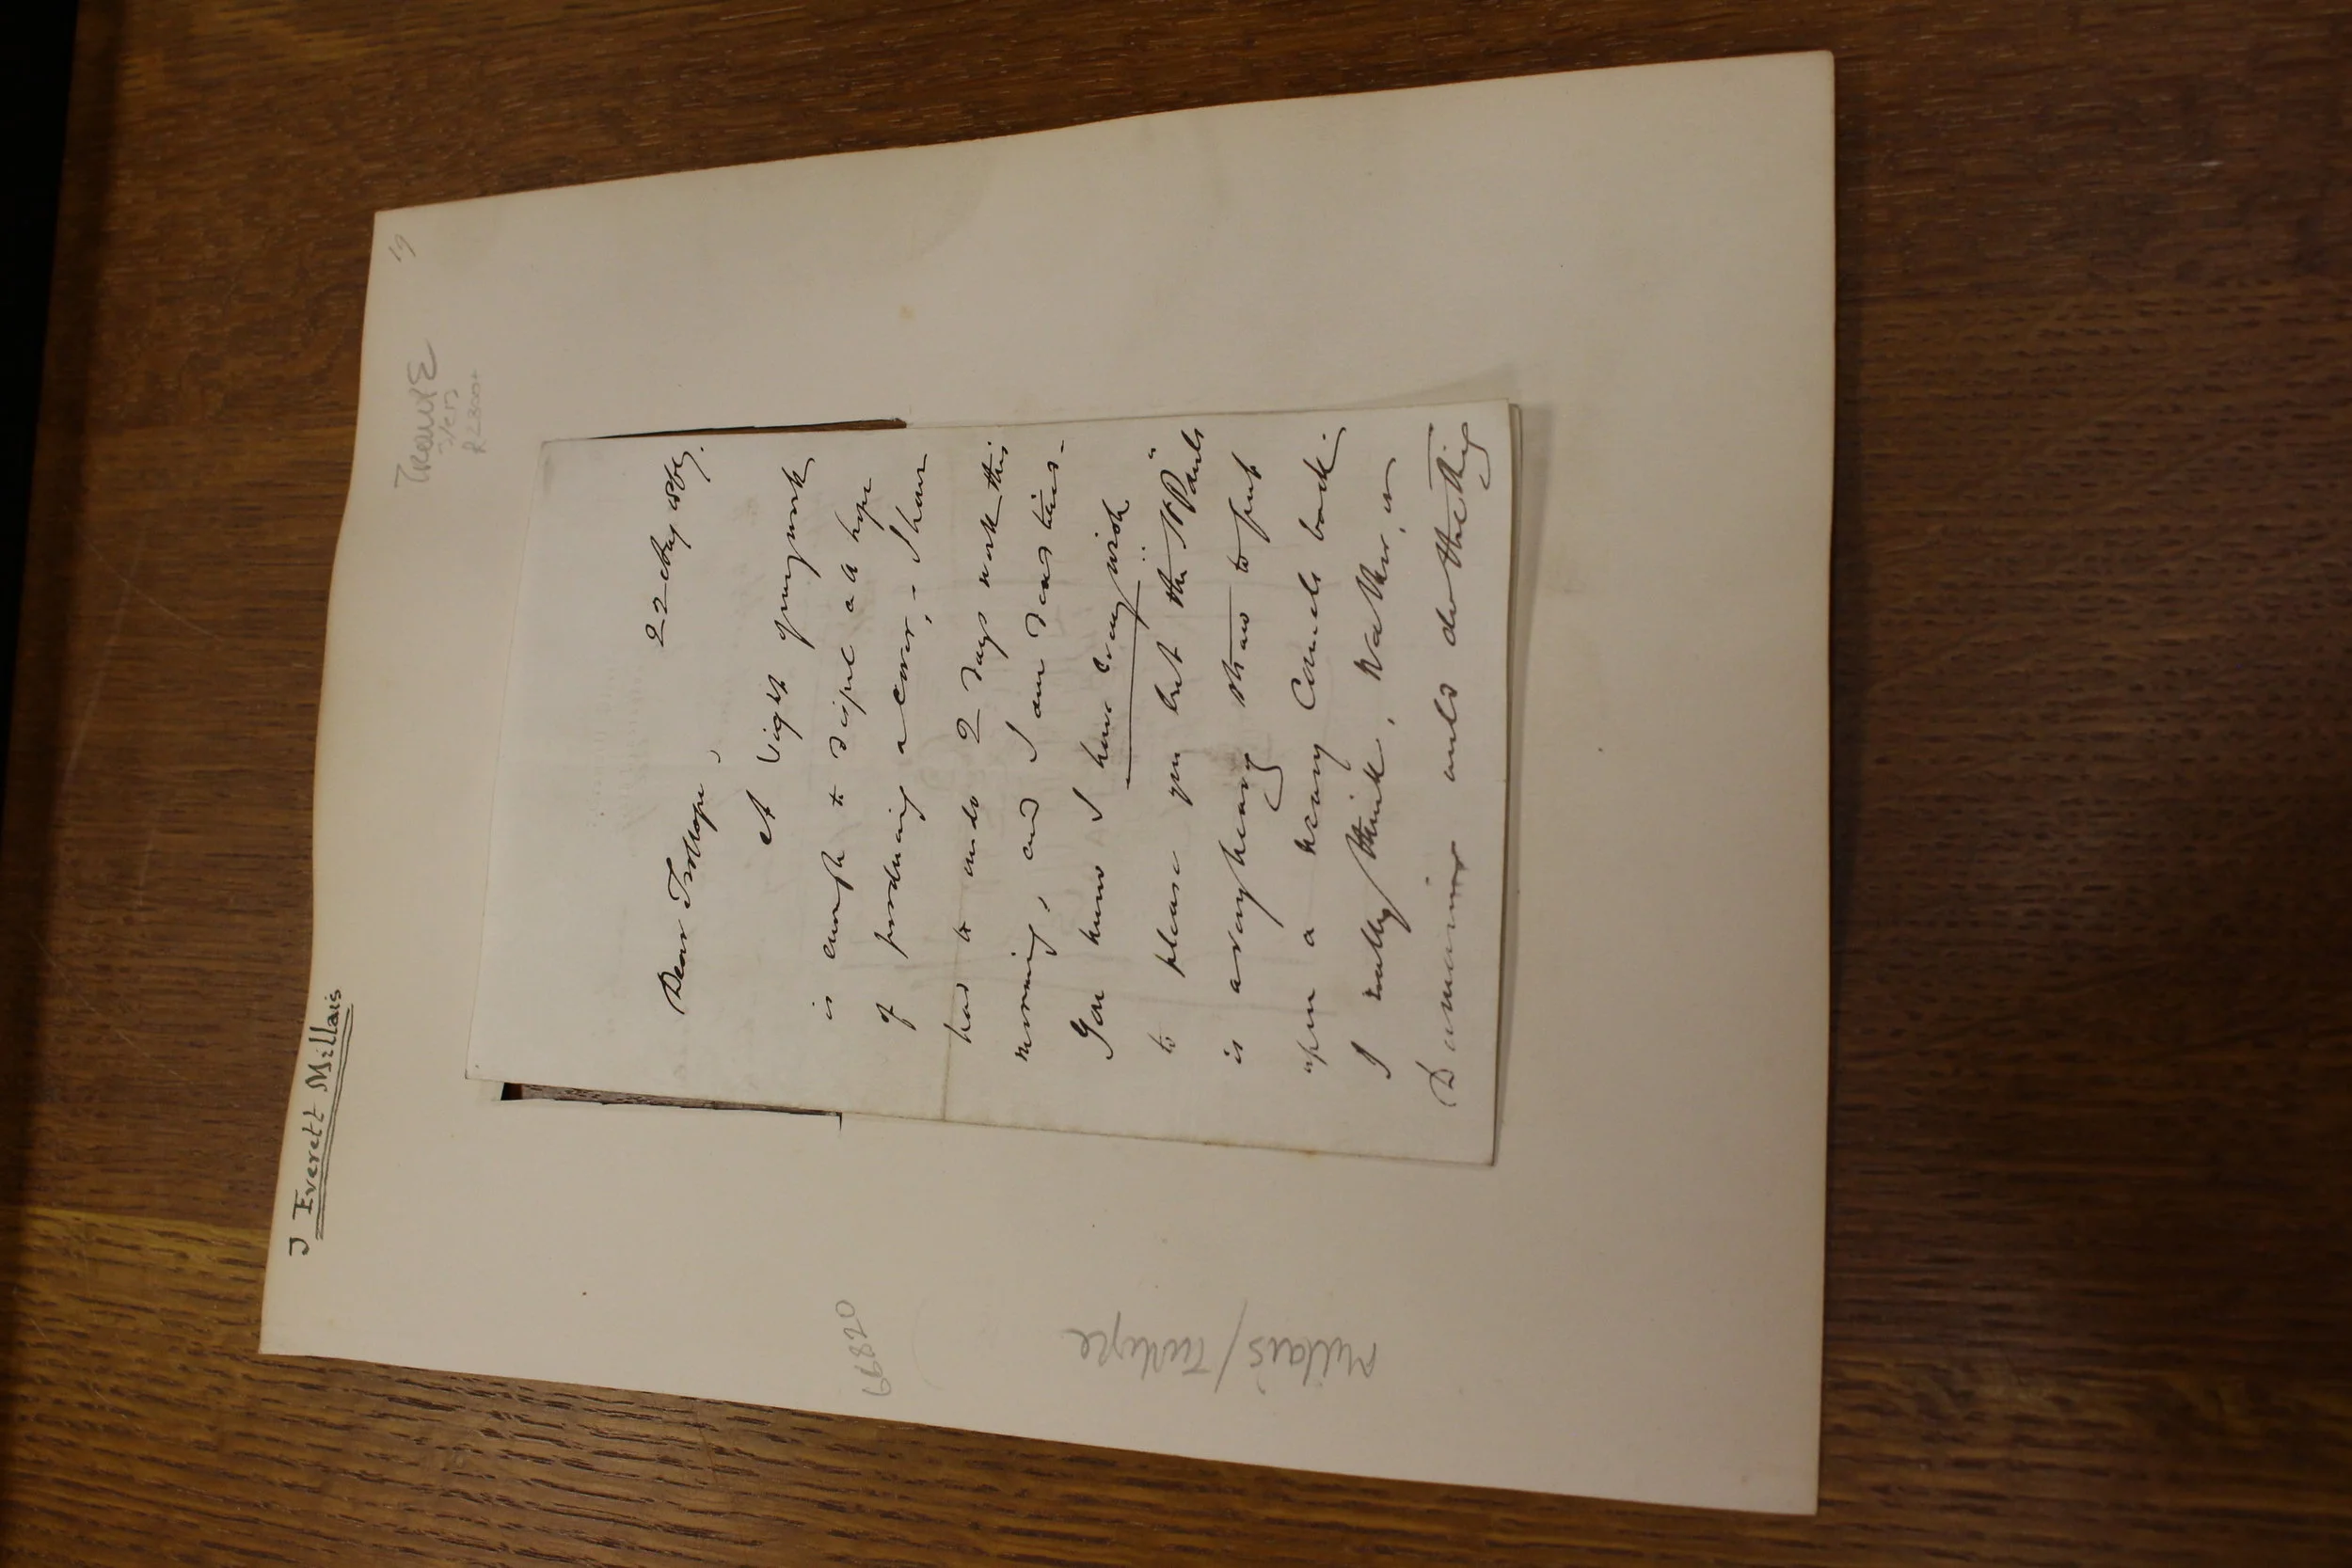 J Everett Millais
19
22 Aug 1867.
Dear Trollope,
A Night of your work
is enough to dispel all hope
of producing a cover, - I have
had to undo 2 days work this
morning, and I am dead tired -
You know I have every wish
to please you but the "St Pauls"
is a very heavy straw to put
upon a heavy Camels back.
I really think, Walker, or
Du Maurier wuld do the thing
66820
Millais/Trollope